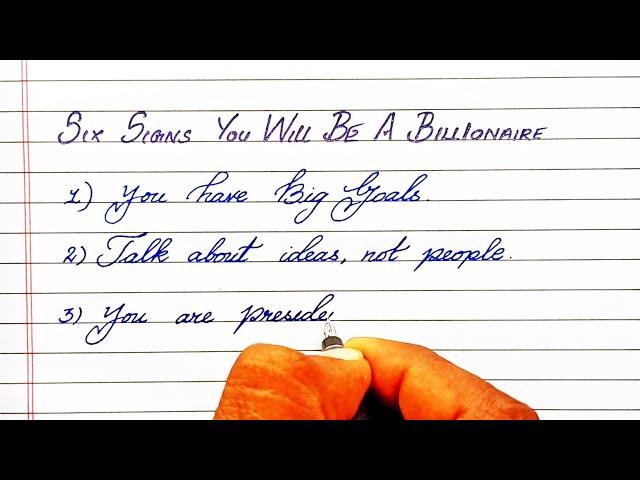 Six Signs You Will Be A Billionaire
1.) You have Big Goals.
2) Talk about ideas, not people.
3) You are preside